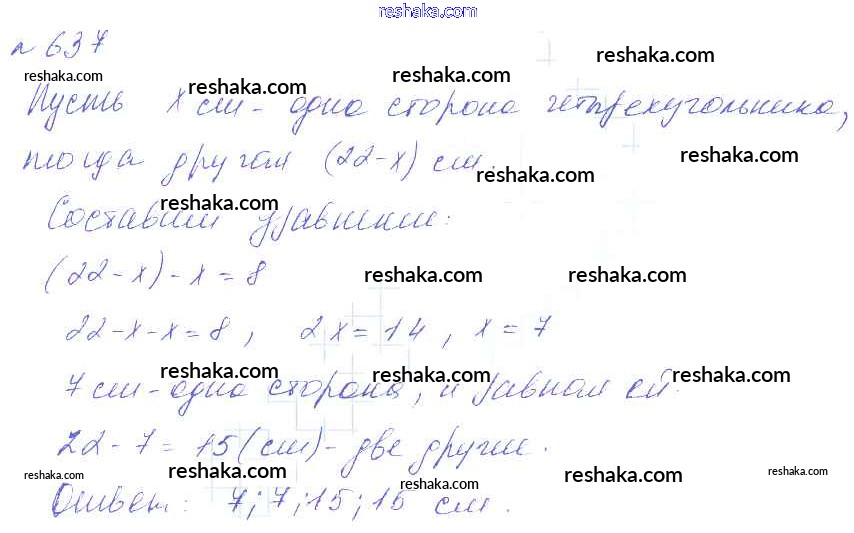 reshaka.com
№ 637
reshaka.com
reshaka.com reshaka.com
reshaka.com
Пусть x см - одна сторона четырехугольника,
reshaka.com reshaka.com
тогда другая (22-x) см.
reshaka.com reshaka.com
reshaka.com
Составим уравнение:
(22-x)-x=8
reshaka.com reshaka.com
22-x-x=8, 2x=14, x=7
reshaka.com reshaka.com reshaka.com
7 см - одна сторона, и равная ей.
22-7=15(см) - две другие.
reshaka.com reshaka.com reshaka.com reshaka.com reshaka.com
Ответ: 7; 7; 15; 15 см.